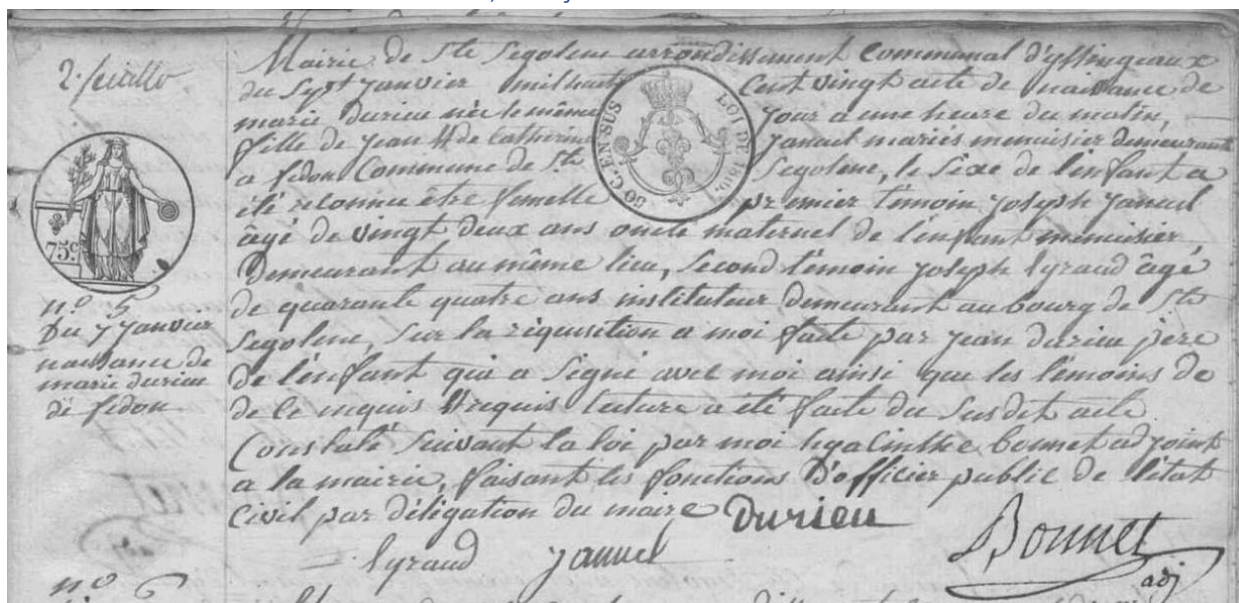 2.e feuillet
Mairie de Ste Segolene arrondissement Communal d'yssingeaux
du Sept janvier mil huit Cent vingt acte de naissance de
marie durieu née le même jour a une heure du matin,
fille de jean & de Catherine januel mariés menuisier demeurant
a fedou Commune de Ste Segolene, le Sexe de l'enfant a
été reconnu être femelle premier témoin joseph januel
âgé de vingt deux ans oncle maternel de l'enfant menuisier
Demeurant au même lieu, Second témoin joseph Syraud âgé
de quarante quatre ans instituteur demeurant au bourg de Ste
Segolene, Sur la réquisition a moi faite par jean durieu père
de l'enfant qui a Signé avec moi ainsi que les témoins de
de ce enquis & requis lecture a été faite du Susdit acte
Constaté Suivant la loi par moi hyacinthe bonnet adjoint
a la mairie, faisant les fonctions D'officier public de l'état
Civil par déligation du maire Durieu
Syraud januel Bonnet
adj
50 C. EN SUS
LOI DE 1816.
75.c
n.o 5
Du 7 janvier
naissance de
marie durieu
de fedou
n.o 6